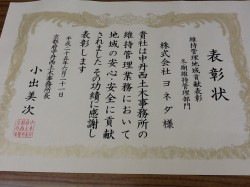 表彰状
維持管理地域貢献表彰
冬期維持管理部門
株式会社ヨネダ様
貴社は中丹西土木事務所の
維持管理業務において
地域の安心・安全に貢献
されましたその功績に感謝し
表彰します
平成二十五年六月二十一日
京都府中丹西土木事務所長
小出美次